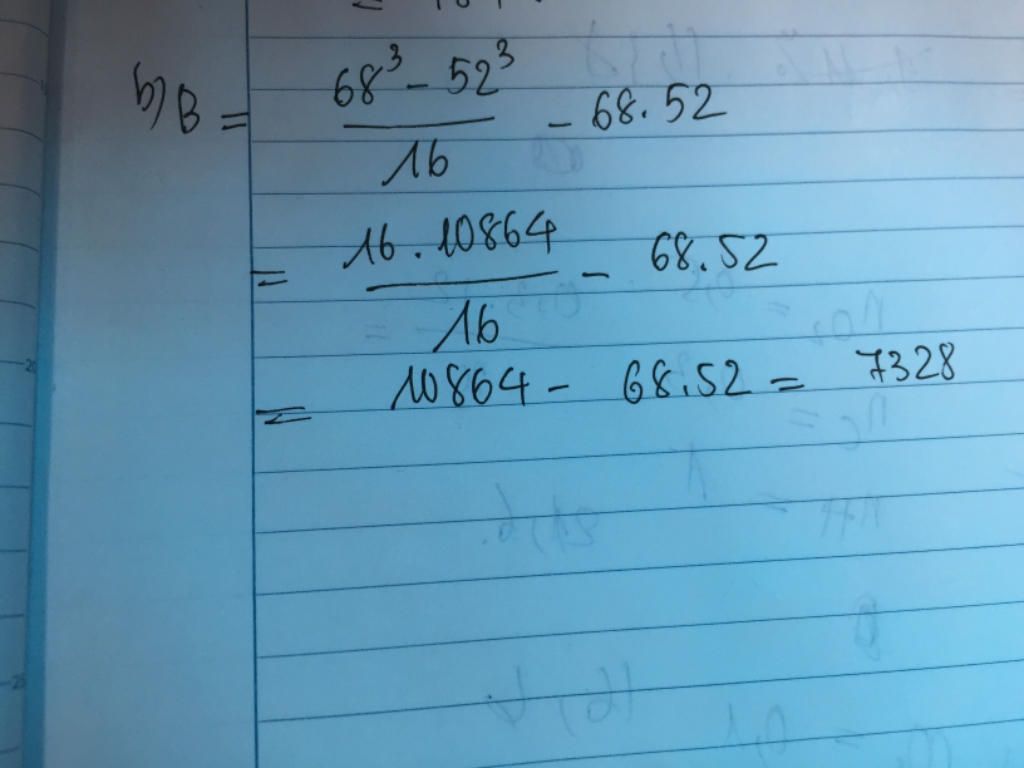 b) B = \frac{68³ - 52³}{16} - 68.52
= \frac{16.10864}{16} - 68.52
= 10864 - 68.52 = 7328